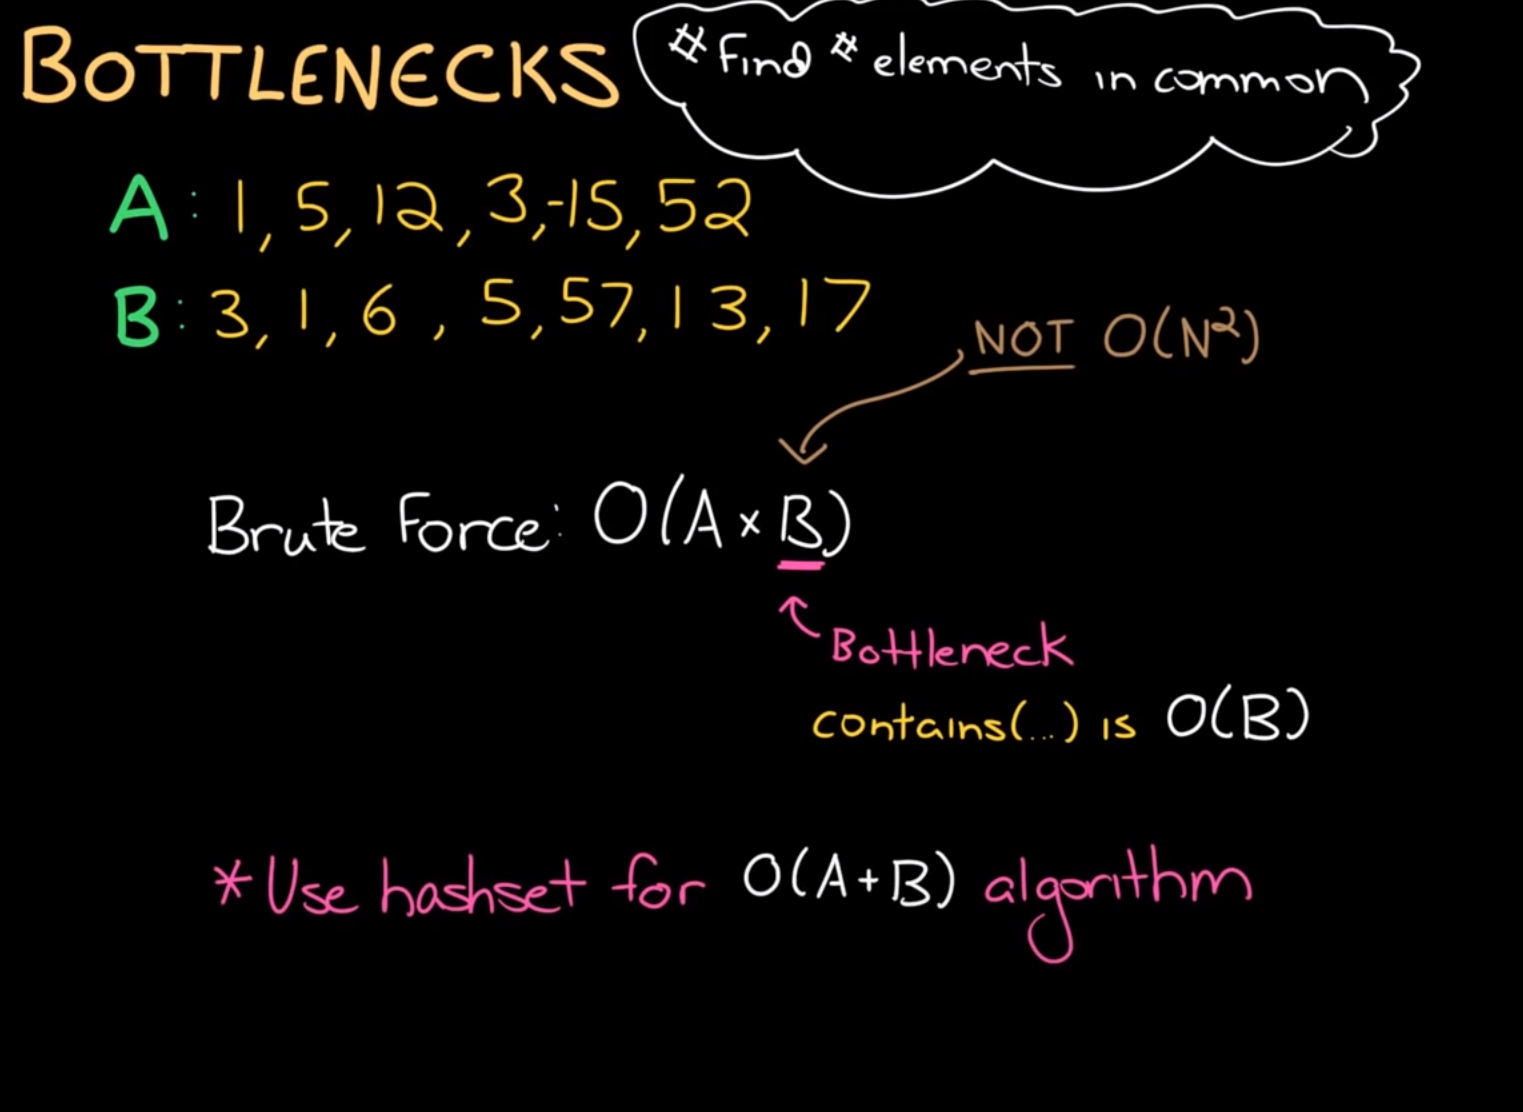 BOTTLENECKS
# Find # elements in common
A: 1, 5, 12, 3, -15, 52
B: 3, 1, 6, 5, 57, 13, 17
NOT O(N²)
Brute Force: O(A × B)
Bottleneck
contains(...) is O(B)
* Use hashset for O(A+B) algorithm